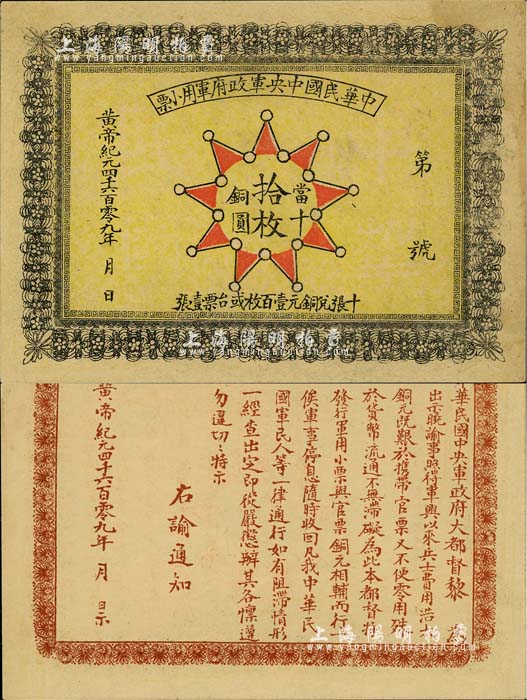 上海陽明拍賣
www.yangmingauction.com
中華民國中央軍政府軍用小票
第 號
當十
銅圓
拾枚
黃帝紀元四千六百零九年 月 日
十張兌銅元壹百枚或台票壹張
上海陽明拍賣
www.yangmingauction.com
華民國中央軍政府大都督黎 為
出示曉諭事照得軍興以來兵士費用浩大
銅元既艱於攜帶官票又不便零用殊
於貨幣流通不無滯礙為此本都督特
發行軍用小票與官票銅元相輔而行一
俟軍事停息隨時收回凡我中華民
國軍民人等一律通行如有阻滯情形
一經查出定即從嚴懲辦其各懍遵
勿違切切特示
右諭通知
黃帝紀元四千六百零九年 月 日示
上海陽明拍賣
www.yangmingauction.com